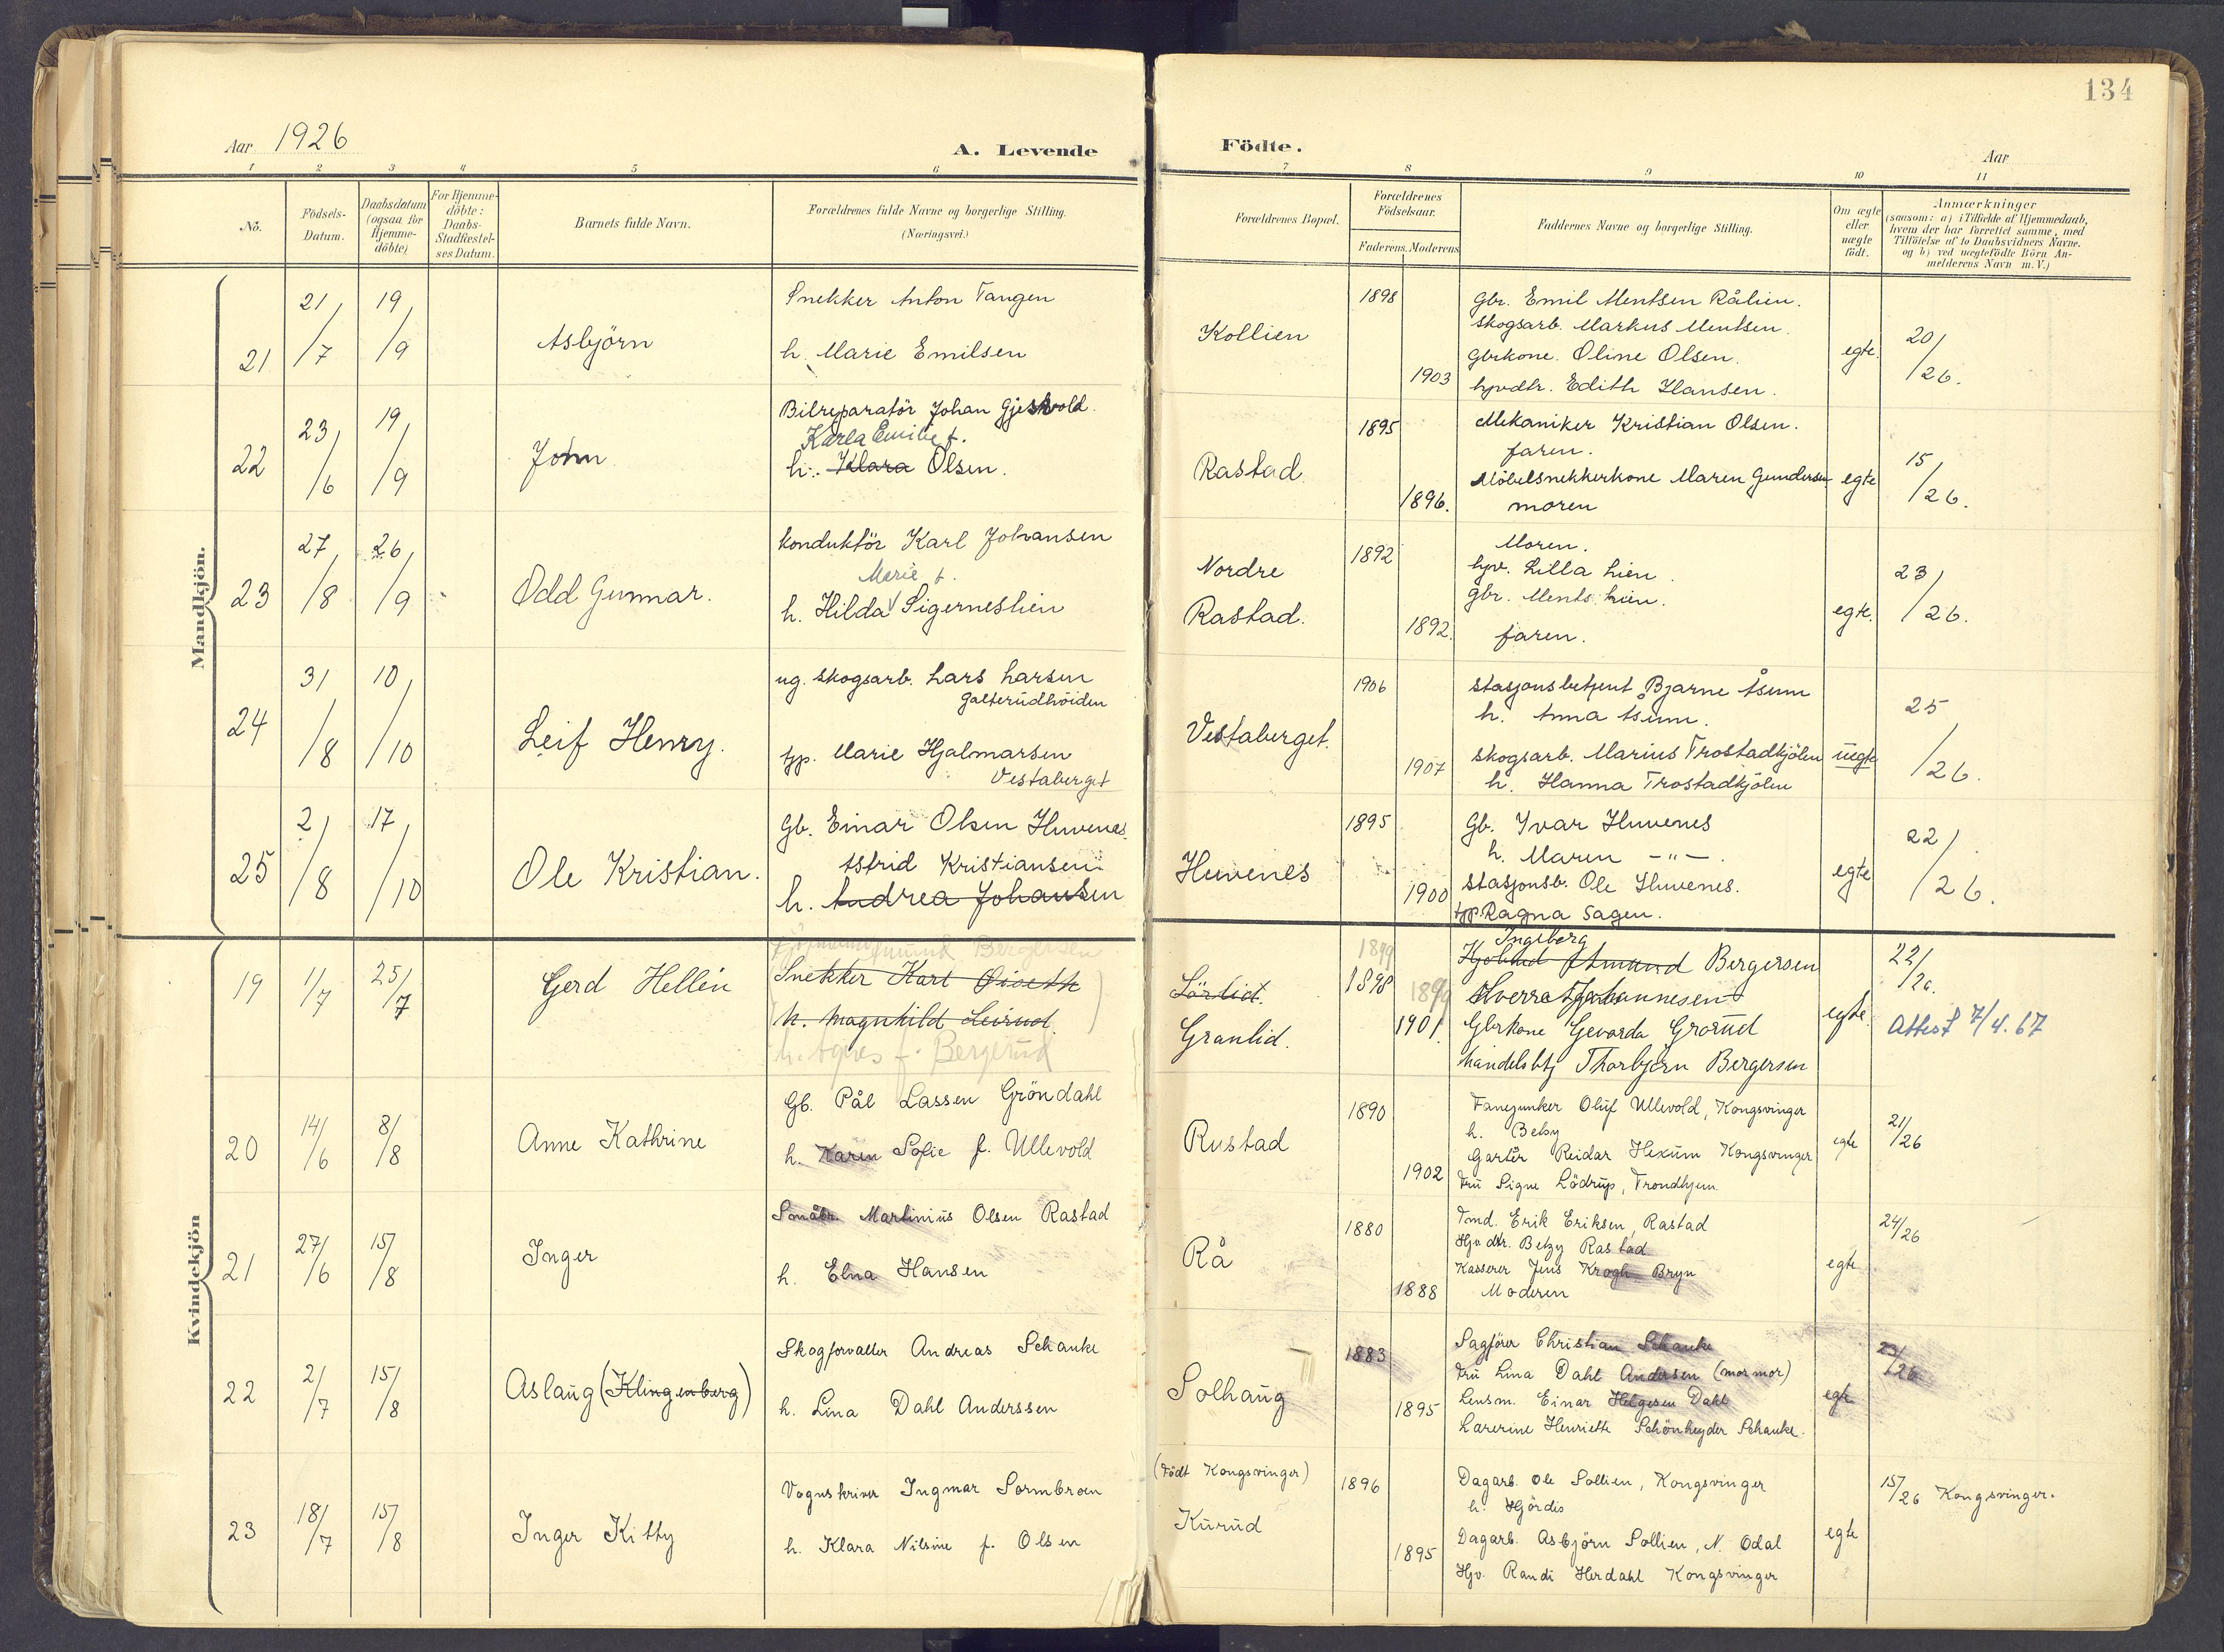 134
Aar 1926
A. Levende
Födte.
Aar
1 2 3 4 5 6
7 8 9 10 11
No.
Födsels-
Datum.
Daabsdatum
(ogsaa for
Hjemme-
döbte)
For Hjemme-
döbte:
Daabs-
Stadfæstel-
ses Datum.
Barnets fulde Navn.
Forældrenes fulde Navne og borgerlige Stilling.
(Næringsvei.)
Forældrenes Bopæl.
Forældrenes
Födselsaar.
Faderens. Moderens
Faddernes Navne og borgerlige Stilling.
Om ægte
eller
uægte
födt.
Anmærkninger
(saasom: a) i Tilfælde af Hjemmedaab,
hvem der har forrettet samme, med
Tilföielse af to Daabsvidners Navne.
og b) ved uægtefödte Börn An-
melderens Navn m. V.)
Mandkjön.
21
21/7
19/9
Asbjörn
Snekker Anton Tangen
h. Marie Emilsen
Kollien
1898
1903
Gbr. Emil Mentsen Rålien.
Skogsarb. Markus Mentsen.
Gbrkone. Oline Olsen.
hpvdtr. Edith Hansen.
egte.
20/26.
22
23/6
19/9
John
Bilreparatör Johan Gjeskvold.
Karla Emilie f.
h. Klara Olsen.
Rastad
1895
1896.
Mekaniker Kristian Olsen.
faren.
Möbelsnekkerkone Maren Gundersen
moren
egte
15/26.
23
27/8
26/9
Odd Gunnar.
konduktör Karl Johansen
Marie f.
h. Hilda Sigerneslien
Nordre
Rastad.
1892
1892.
Moren.
hpv. Lilla Lien.
gbr. Ments Lien.
faren.
egte.
23/26.
24
31/8
10/10
Leif Henry.
ug. skogsarb. Lars Larsen
Galterudhöiden
tjp. Marie Hjalmarsen
Vestaberget
Vestaberget.
1906
1907
Stasjonsbetjent Bjarne Åsum
h. Anna Åsum.
Skogsarb. Marius Trostadkjölen
h. Hanna Trostadkjölen
uegte
25/26.
25
2/8
17/10
Ole Kristian.
Gb. Einar Olsen Huvenes.
Astrid Kristiansen
h. Andrea Johansen
Huvenes
1895
1900
Gb. Ivar Huvenes
h. Maren -"-.
Stasjonsb. Ole Huvenes.
tjp. Ragna Sagen.
egte
22/26.
Kvindekjön
19
1/7
25/7
Gerd Hellin
Bergersen
Snekker Karl
h. Magnhild Leirud.
h. Agnes f. Bergerud
Lörlid.
Granlid.
1899
1898
1899
1901.
Ingeberg
Amund Bergersen
Johannesen
Gbrkone Gevarda Grorud
Handelsbtj Thorbjörn Bergersen
egte.
22/26.
Attest 7/4.67
20
14/6
8/8
Anne Kathrine
Gb. Pål Lassen Gröndahl
h. Karen Sofie f. Ullevold
Rustad
1890
1902
Fanejunker Oluf Ullevold, Kongsvinger
h. Betsy
Gartner Reidar Hexum Kongsvinger
Fru Signe Lödrup, Trondhjem.
egte
21/26
21
27/6
15/8
Inger
Småbr. Martinius Olsen Rastad
h. Elna Hansen
Rå
1880
1888
Tmd. Erik Eriksen, Rastad
Hjv dtr. Betzy Rastad
Kasserer Jens Krogh Bryn
Moderen
egte
24/26
22
2/7
15/8
Aslaug (Klingenberg)
Skogforvalter Andreas Schanke
h. Lina Dahl Anderssen
Solhaug
1883
1895
Sagförer Christian Schanke
Fru Lina Dahl Andersen (mormor)
Lensm. Einar Helgesen Dahl
Lærerine Henriette Schönheyder Schanke.
egte
23/26
23
18/7
15/8
Inger Kitty
Vognskriver Ingmar Sormbroen
h. Klara Nilsine f. Olsen
(Födt Kongsvinger)
Kurud
1896
1895
Dagarb. Ole Sollien, Kongsvinger
h. Hjördis
Dagarb. Asbjörn Sollien, N. Odal
Hjv. Randi Herdahl Kongsvinger
egte
15/26 Kongsvinger.